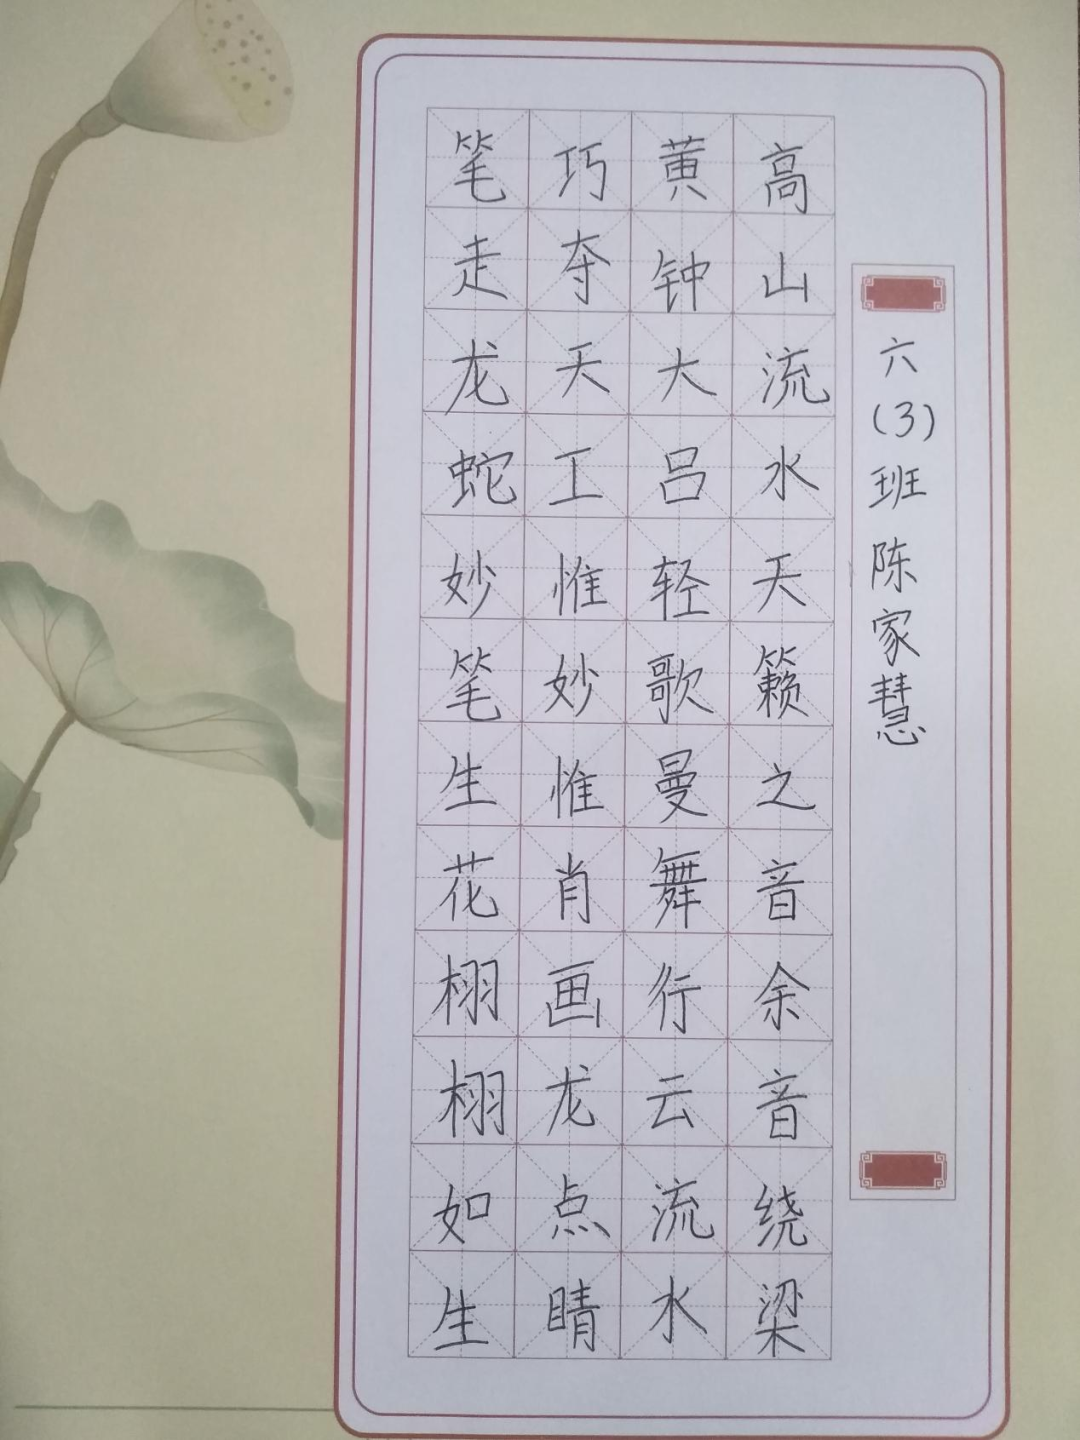 六(3)班陈家慧
高山流水天籁之音余音绕梁
黄钟大吕轻歌曼舞行云流水
巧夺天工惟妙惟肖画龙点睛
笔走龙蛇妙笔生花栩栩如生